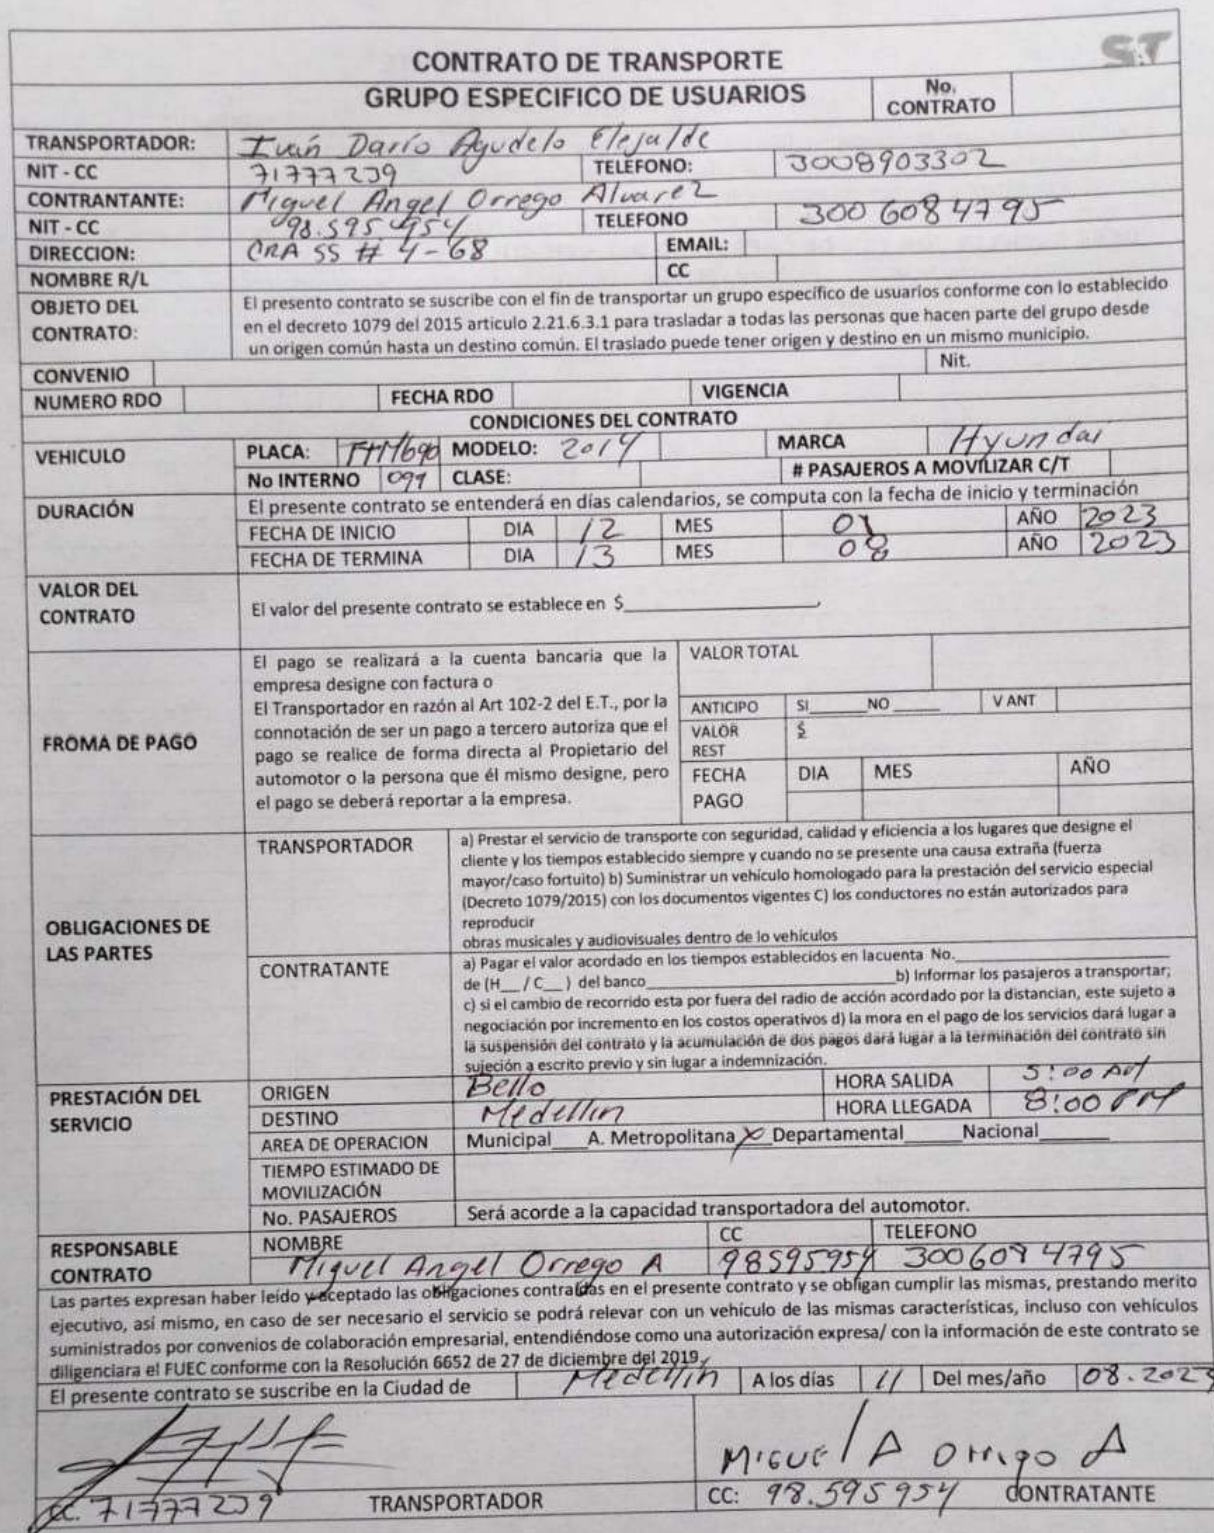 CONTRATO DE TRANSPORTE
S&T
GRUPO ESPECIFICO DE USUARIOS
No. CONTRATO
TRANSPORTADOR: Iván Darío Agudelo Elejalde
NIT - CC 71777239 TELEFONO: 3008903302
CONTRANTANTE: Miguel Angel Orrego Alvarez
NIT - CC 98.595 954 TELEFONO 300 6084795
DIRECCION: CRA 55 # 4-68 EMAIL:
NOMBRE R/L CC
OBJETO DEL CONTRATO:
El presento contrato se suscribe con el fin de transportar un grupo específico de usuarios conforme con lo establecido
en el decreto 1079 del 2015 articulo 2.21.6.3.1 para trasladar a todas las personas que hacen parte del grupo desde
un origen común hasta un destino común. El traslado puede tener origen y destino en un mismo municipio.
CONVENIO Nit.
NUMERO RDO FECHA RDO VIGENCIA
CONDICIONES DEL CONTRATO
VEHICULO PLACA: MODELO: 2019 MARCA Hyundai
No INTERNO 099 CLASE: # PASAJEROS A MOVILIZAR C/T
DURACIÓN El presente contrato se entenderá en días calendarios, se computa con la fecha de inicio y terminación
FECHA DE INICIO DIA 12 MES AÑO 2023
FECHA DE TERMINA DIA 13 MES 08 AÑO 2023
VALOR DEL CONTRATO
El valor del presente contrato se establece en $
FROMA DE PAGO
El pago se realizará a la cuenta bancaria que la
empresa designe con factura o
El Transportador en razón al Art 102-2 del E.T., por la
connotación de ser un pago a tercero autoriza que el
pago se realice de forma directa al Propietario del
automotor o la persona que él mismo designe, pero
el pago se deberá reportar a la empresa.
VALOR TOTAL
ANTICIPO SI____ NO____ V ANT
VALOR REST $
FECHA PAGO DIA MES AÑO
OBLIGACIONES DE LAS PARTES
TRANSPORTADOR
a) Prestar el servicio de transporte con seguridad, calidad y eficiencia a los lugares que designe el
cliente y los tiempos establecido siempre y cuando no se presente una causa extraña (fuerza
mayor/caso fortuito) b) Suministrar un vehículo homologado para la prestación del servicio especial
(Decreto 1079/2015) con los documentos vigentes C) los conductores no están autorizados para
reproducir
obras musicales y audiovisuales dentro de lo vehiculos
CONTRATANTE
a) Pagar el valor acordado en los tiempos establecidos en lacuenta No.
de (H__ / C__ ) del banco____ b) Informar los pasajeros a transportar;
c) si el cambio de recorrido esta por fuera del radio de acción acordado por la distancian, este sujeto a
negociación por incremento en los costos operativos d) la mora en el pago de los servicios dará lugar a
la suspensión del contrato y la acumulación de dos pagos dará lugar a la terminación del contrato sin
sujeción a escrito previo y sin lugar a indemnización.
PRESTACIÓN DEL SERVICIO
ORIGEN Bello HORA SALIDA 5:00 AM
DESTINO Medellin HORA LLEGADA 8:00 PM
AREA DE OPERACION Municipal____ A. Metropolitana X Departamental____ Nacional____
TIEMPO ESTIMADO DE MOVILIZACIÓN
No. PASAJEROS Será acorde a la capacidad transportadora del automotor.
RESPONSABLE CONTRATO
NOMBRE CC TELEFONO
Miguel Angel Orrego A 98595954 3006084795
Las partes expresan haber leído y aceptado las obligaciones contraídas en el presente contrato y se obligan cumplir las mismas, prestando merito
ejecutivo, así mismo, en caso de ser necesario el servicio se podrá relevar con un vehículo de las mismas características, incluso con vehículos
suministrados por convenios de colaboración empresarial, entendiéndose como una autorización expresa/ con la información de este contrato se
diligenciara el FUEC conforme con la Resolución 6652 de 27 de diciembre del 2019.
El presente contrato se suscribe en la Ciudad de Medellin A los días 11 Del mes/año 08.2023
Miguel A Orrego A
CC. 71777239 TRANSPORTADOR
CC: 98.595954 CONTRATANTE